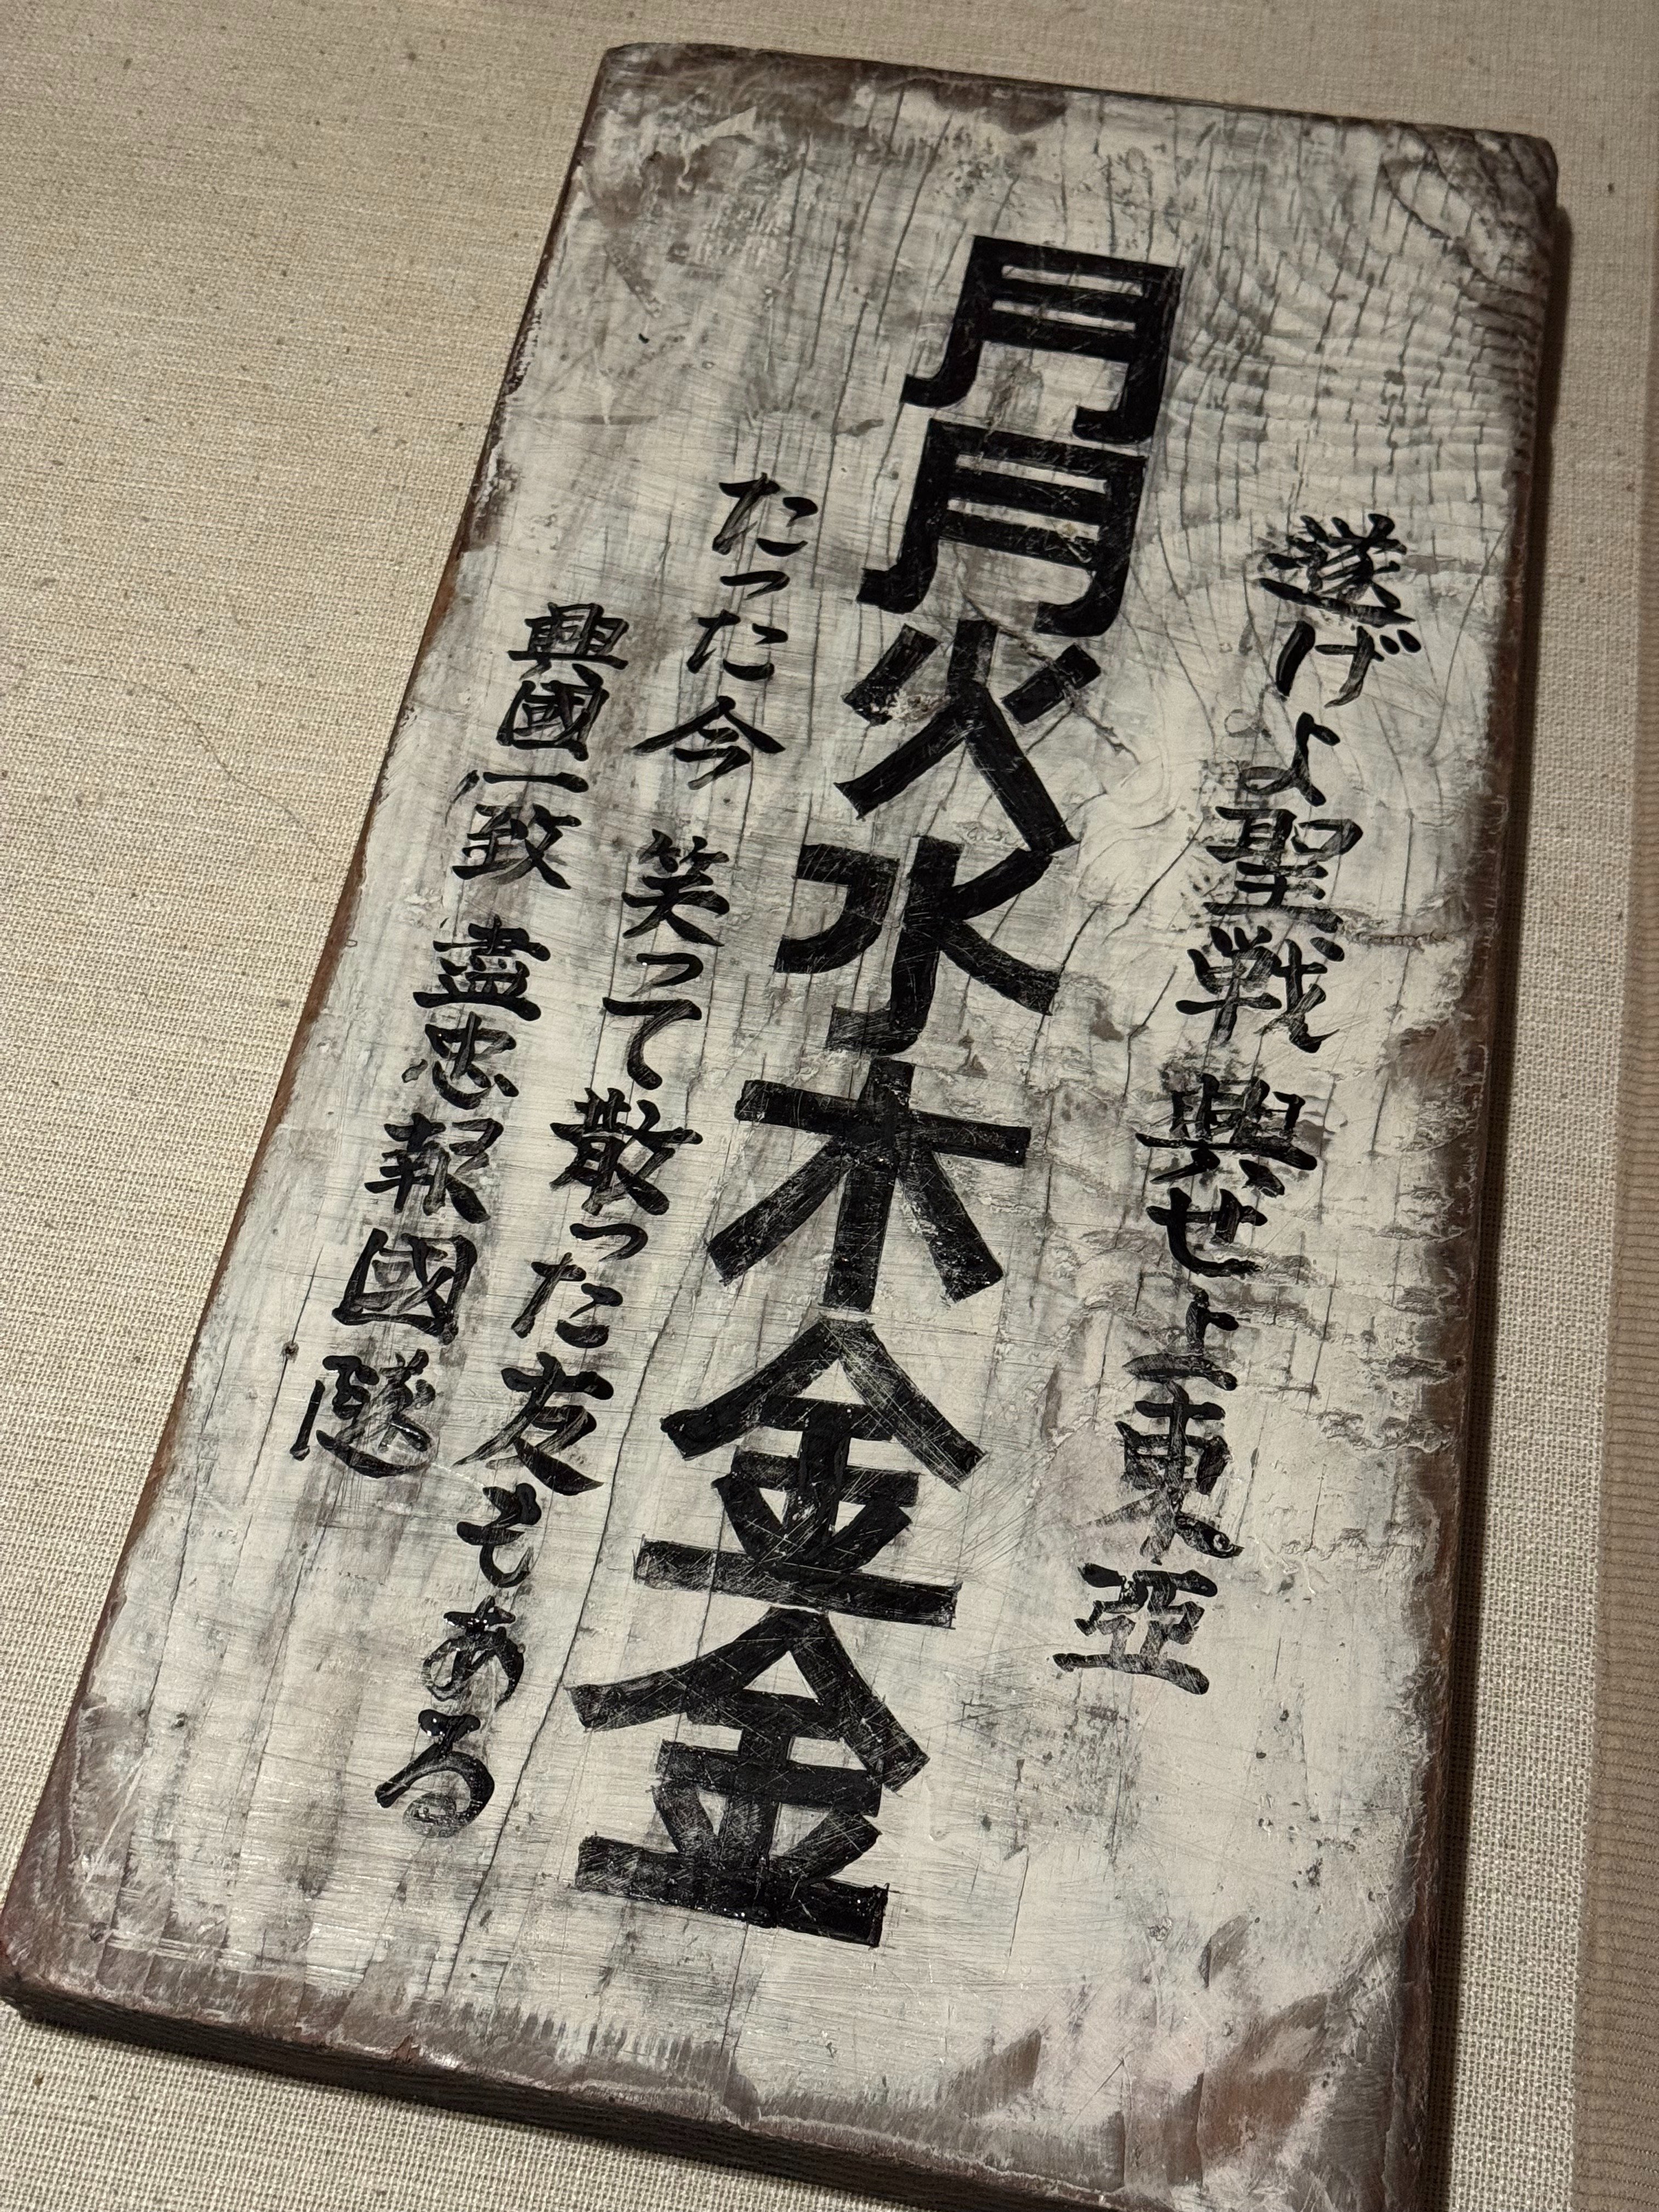 遂げよ聖戦 興せよ東亞
月月火水木金金
たった今 笑って散った友もある
興國一致 盡忠報國隊